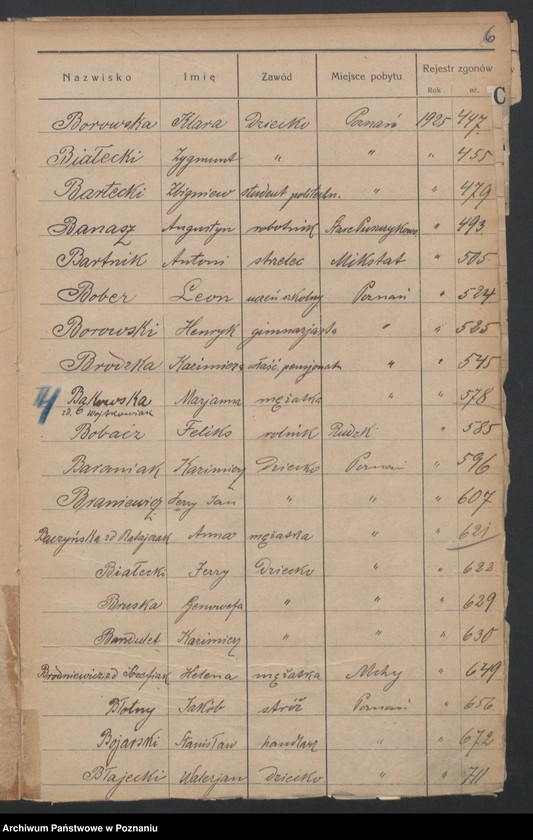 6
Nazwisko Imię Zawód Miejsce pobytu Rejestr zgonów
Rok nr.
C
Borowska Klara Dziecko Poznań 1925 447
Białecki Zygmunt " " " 455
Bartecki Zbigniew student politechn. " " 479
Banasz Augustyn robotnik Stare " 493
Bartnik Antoni strzelec Mikstat " 505
Bober Leon uczeń szkolny Poznań " 524
Borowski Henryk gimnazjasta " " 525
Brodzka Kazimiera właśc. pensjonatu " " 545
Bąkowska Marjanna mężatka " " 578
zd. Wojtkowiak
Bobacz Feliks rolnik Rudzk " 585
Baraniak Kazimierz Dziecko Poznań " 596
Braniewicz Jerzy Jan " " " 607
Baczyńska zd Ratajczak Anna mężatka " " 621
Białecki Jerzy Dziecko " " 622
Breska Genowefa " " " 629
Bandulet Kazimierz " " " 630
Brodniewicz zd Józefiak Helena mężatka Mchy " 649
Błotny Jakób stróż Poznań " 656
Bojarski Stanisław handlarz " " 672
Błajecki Walerjan dziecko " " 711
Archiwum Państwowe w Poznaniu